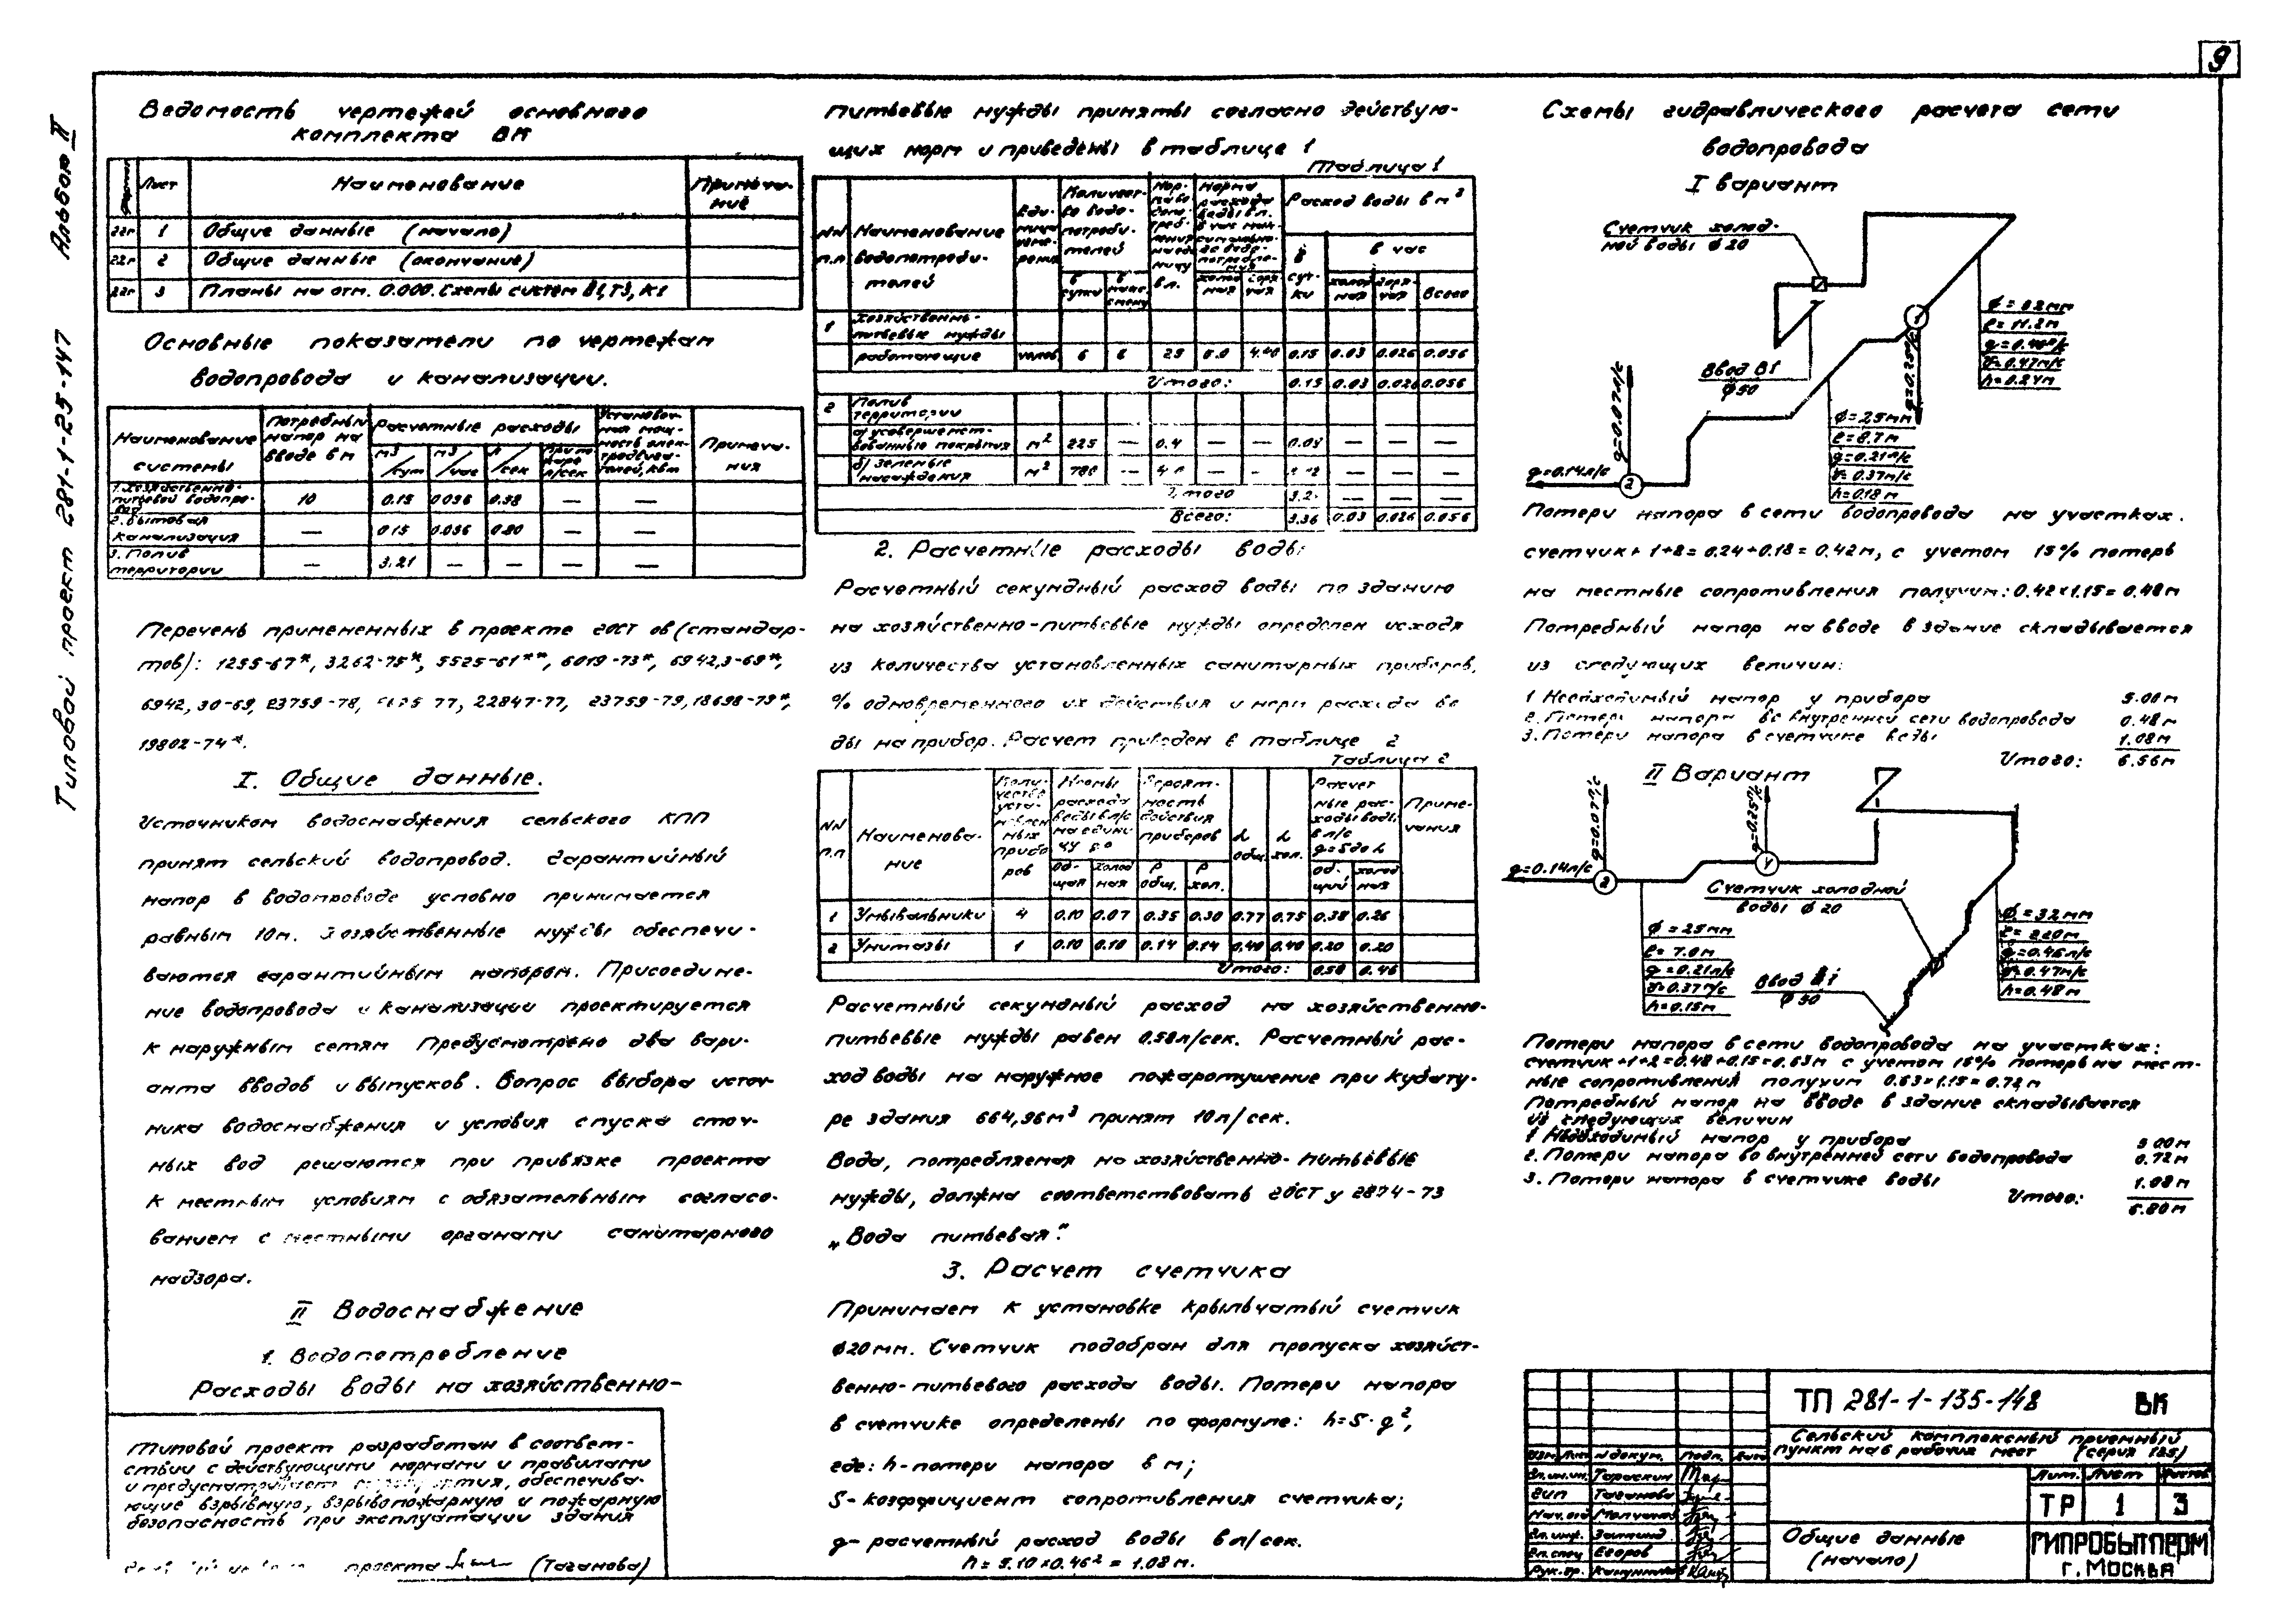 9
Альбом II
Типовой проект 281-1-25-147
Ведомость чертежей основного
комплекта ВК
Лист Наименование Примеча-
ние
22г 1 Общие данные (начало)
22г 2 Общие данные (окончание)
22г 3 Планы на отм. 0.000. Схемы систем В1, Т3, К1
Основные показатели по чертежам
водопровода и канализации.
Наименование
системы
Потребный
напор на
вводе в м
Расчетные расходы
м3/сут м3/час л/сек При пожаре л/сек
Установоч-
ная мощ-
ность элек-
тродвига-
телей, квт
Примеча-
ния
1. Хозяйственно-
питьевой водопро-
вод 10 0.15 0.056 0.58 — —
2. Бытовая
канализация — 0.15 0.056 0.80 — —
3. Полив
территории — 3.21 — — — —
Перечень примененных в проекте гост ов (стандар-
тов): 1255-67*, 3262-75*, 5525-61**, 6019-73*, 6942,3-69*,
6942,30-69, 23759-78, 77, 22847-77, 23759-79, 18698-79*,
19802-74*.
I. Общие данные.
Источником водоснабжения сельского КПП
принят сельский водопровод. Гарантийный
напор в водопроводе условно принимается
равным 10м. Хозяйственные нужды обеспечи-
ваются гарантийным напором. Присоедине-
ние водопровода и канализации проектируется
к наружным сетям Предусмотрено два вари-
анта вводов и выпусков. Вопрос выбора источ-
ника водоснабжения и условия спуска сточ-
ных вод решаются при привязке проекта
к местным условиям с обязательным согласо-
ванием с местными органами санитарного
надзора.
II Водоснабжение
1. Водопотребление
Расходы воды на хозяйственно-
Типовой проект разработан в соответ-
ствии с действующими нормами и правилами
и предусматривает мероприятия, обеспечива-
ющие взрывную, взрывопожарную и пожарную
безопасность при эксплуатации здания
проекта (Таганова)
питьевые нужды приняты согласно действую-
щих норм и приведены в таблице 1
Таблица 1
NN
п.п
Наименование
водопотреби-
телей
Еди-
ница
изме-
рения
Количест-
во водо-
потреби-
телей
в сутки в макс. смену
Нор-
ма во
допо-
треб-
ления
на еди-
ницу
в л.
Норма
расхода
воды в л.
в час мак-
симально-
го водо-
потребле-
ния
холод
ная
горя
чая
Расход воды в м3
в
сут-
ки
в час
холод
ная
горя-
чая
Всего
1 Хозяйственно-
питьевые нужды
работающие челов. 6 6 25 5.0 4.40 0.15 0.03 0.026 0.056
Итого: 0.15 0.03 0.026 0.056
2 Полив
территории
а) усовершенст-
вованные покрытия м2 225 — 0.4 — — 0.09 — — —
б) зеленые
насаждения м2 780 — — — — — —
Итого — — —
Всего: 3.36 0.03 0.026 0.056
2. Расчетные расходы воды
Расчетный секундный расход воды по зданию
на хозяйственно-питьевые нужды определен исходя
из количества установленных санитарных приборов,
% одновременного их действия и норм расхода во
ды на прибор. Расчет приведен в таблице 2
Таблица 2
NN
п.п
Наименова-
ние
Коли-
чество
уста-
новлен
ных
прибо
ров
Нормы
расхода
воды в л/с
на едини
цу g0
об-
щая
холод
ная
Вероят-
ность
действия
приборов
P
общ.
P
хол.
α
общ.
α
хол.
Расчет
ные рас-
ходы воды
в л/с
g=5g0α
об-
щий
холод
ная
Приме-
чания
1 Умывальники 4 0.10 0.07 0.35 0.30 0.77 0.75 0.38 0.26
2 Унитазы 1 0.10 0.10 0.14 0.14 0.40 0.40 0.20 0.20
Итого: 0.58 0.46
Расчетный секундный расход на хозяйственно-
питьевые нужды равен 0.58л/сек. Расчетный рас-
ход воды на наружное пожаротушение при кубату-
ре здания 664,96м3 принят 10л/сек.
Вода, потребляемая на хозяйственно-питьевые
нужды, должна соответствовать ГОСТ у 2874-73
„Вода питьевая".
3. Расчет счетчика
Принимаем к установке крыльчатый счетчик
ф20мм. Счетчик подобран для пропуска хозяйст-
венно-питьевого расхода воды. Потери напора
в счетчике определены по формуле: h=S·g2,
где: h-потери напора в м;
S-коэффициент сопротивления счетчика;
g- расчетный расход воды в л/сек.
h = 5.10×0.46² = 1.08 м.
Схемы гидравлического расчета сети
водопровода
I вариант
Счетчик холод-
ной воды ф 20
Ввод В1
ф50
1
ф = 32мм
ℓ= 11.2м
g= 0.46л/с
v= 0.47м/с
h= 0.24м
g=0.25л/с
g=0.07л/с
g=0.14л/с
2
ф = 25мм
ℓ= 8.7м
g= 0.21л/с
v= 0.37м/с
h= 0.18м
Потери напора в сети водопровода на участках.
счетчик+1+2= 0.24+0.18= 0.42м, с учетом 15% потерь
на местные сопротивления получим: 0.42×1.15= 0.48м
Потребный напор на вводе в здание складывается
из следующих величин:
1 Необходимый напор у прибора 5.00м
2. Потери напора во внутренней сети водопровода 0.48м
3. Потери напора в счетчике воды 1.08м
Итого: 6.56м
II Вариант
g=0.07л/с
g=0.25л/с
g=0.14л/с
2
1
Счетчик холодной
воды ф 20
ф = 25мм
ℓ= 7.0м
g= 0.21л/с
v= 0.37м/с
h= 0.15м
Ввод В1
ф 50
ф = 32мм
ℓ= 22.0м
g= 0.46л/с
v= 0.47м/с
h= 0.48м
Потери напора в сети водопровода на участках:
счетчик+1+2=0.48+0.15=0.63м с учетом 15% потерь на мест-
ные сопротивления получим 0.63×1.15= 0.72м
Потребный напор на вводе в здание складывается
из следующих величин
1 Необходимый напор у прибора 5.00м
2. Потери напора во внутренней сети водопровода 0.72м
3. Потери напора в счетчике воды 1.08м
Итого: 6.80м
ТП 281-1-135-148 ВК
Сельский комплексный приемный
пункт на 6 рабочих мест (серия 125)
Изм. Лист N докум. Подп. Дата
Гл.ин.ин. Тараскин
Гип Таганова
Нач. отд Молчанов
Гл. инж.
Гл. спец Егоров
Рук. гр.
Лит. Лист Листов
ТР 1 3
Общие данные
(начало)
ГИПРОБЫТПРОМ
г. Москва